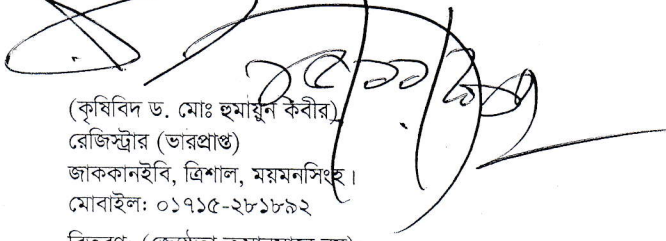 (কৃষিবিদ ড. মোঃ হুমায়ুন কবীর)
রেজিস্ট্রার (ভারপ্রাপ্ত)
জাককানইবি, ত্রিশাল, ময়মনসিংহ।
মোবাইল: ০১৭১৫-২৮১৮৯২